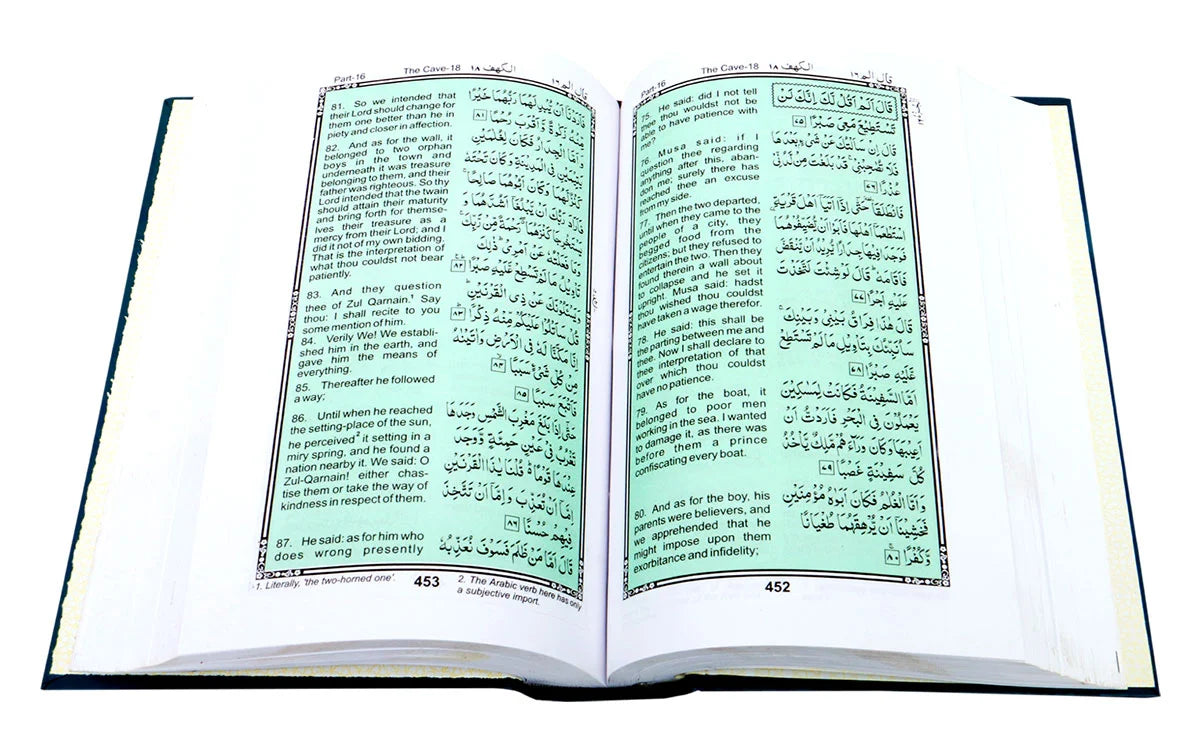 Part-16 The Cave-18 الكهف ١٨ قال الم ١٦
75. He said: did I not tell
thee thou wouldst not be
able to have patience with
me?
76. Musa said: if I
question thee regarding
anything after this, aban-
don me; surely there has
reached thee an excuse
from my side.
77. Then the two departed,
until when they came to the
people of a city, they
begged food from the
citizens; but they refused to
entertain the two. Then they
found therein a wall about
to collapse and he set it
upright. Musa said: hadst
thou wished thou couldst
have taken a wage therefor.
78. He said: this shall be
the parting between me and
thee. Now I shall declare to
thee interpretation of that
over which thou couldst
have no patience.
79. As for the boat, it
belonged to poor men
working in the sea. I wanted
to damage it, as there was
before them a prince
confiscating every boat.
80. And as for the boy, his
parents were believers, and
we apprehended that he
might impose upon them
exorbitance and infidelity;
قَالَ اَلَمْ اَقُلْ لَّكَ اِنَّكَ لَنْ
تَسْتَطِيْعَ مَعِىَ صَبْرًا ٧٥
قَالَ اِنْ سَاَلْتُكَ عَنْ شَىْءٍۭ بَعْدَهَا
فَلَا تُصٰحِبْنِىْ ۚ قَدْ بَلَغْتَ مِنْ لَّدُنِّىْ
عُذْرًا ٧٦
فَانْطَلَقَا ۥ حَتّٰٓى اِذَاۤ اَتَيَاۤ اَهْلَ قَرْيَةِ ۨ
اسْتَطْعَمَاۤ اَهْلَهَا فَاَبَوْا اَنْ يُّضَيِّفُوْهُمَا
فَوَجَدَا فِيْهَا جِدَارًا يُّرِيْدُ اَنْ يَّنْقَضَّ
فَاَقَامَهٗ ؕ قَالَ لَوْ شِئْتَ لَتَّخَذْتَ
عَلَيْهِ اَجْرًا ٧٧
قَالَ هٰذَا فِرَاقُ بَيْنِىْ وَبَيْنِكَ ۚ
سَاُنَبِّئُكَ بِتَاْوِيْلِ مَا لَمْ تَسْتَطِعْ
عَّلَيْهِ صَبْرًا ٧٨
اَمَّا السَّفِيْنَةُ فَكَانَتْ لِمَسٰكِيْنَ
يَعْمَلُوْنَ فِى الْبَحْرِ فَاَرَدْتُّ اَنْ
اَعِيْبَهَا وَكَانَ وَرَآءَهُمْ مَّلِكٌ يَّاْخُذُ
كُلَّ سَفِيْنَةٍ غَصْبًا ٧٩
وَاَمَّا الْغُلٰمُ فَكَانَ اَبَوٰهُ مُؤْمِنَيْنِ
فَخَشِيْنَاۤ اَنْ يُّرْهِقَهُمَا طُغْيَانًا
وَّكُفْرًا ٨٠
452
Part-16 The Cave-18 الكهف ١٨ قال الم ١٦
81. So we intended that
their Lord should change for
them one better than he in
piety and closer in affection.
82. And as for the wall, it
belonged to two orphan
boys in the town and
underneath it was treasure
belonging to them, and their
father was righteous. So thy
Lord intended that the twain
should attain their maturity
and bring forth for themse-
lves their treasure as a
mercy from their Lord; and I
did it not of my own bidding.
That is the interpretation of
what thou couldst not bear
patiently.
83. And they question
thee of Zul Qarnain.1 Say
thou: I shall recite to you
some mention of him.
84. Verily We! We establi-
shed him in the earth, and
gave him the means of
everything.
85. Thereafter he followed
a way;
86. Until when he reached
the setting-place of the sun,
he perceived2 it setting in a
miry spring, and he found a
nation nearby it. We said: O
Zul-Qarnain! either chas-
tise them or take the way of
kindness in respect of them.
87. He said: as for him who
does wrong presently
فَاَرَدْنَاۤ اَنْ يُّبْدِلَهُمَا رَبُّهُمَا خَيْرًا
مِّنْهُ زَكٰوةً وَّاَقْرَبَ رُحْمًا ٨١
وَاَمَّا الْجِدَارُ فَكَانَ لِغُلٰمَيْنِ
يَتِيْمَيْنِ فِى الْمَدِيْنَةِ وَكَانَ تَحْتَهٗ
كَنْزٌ لَّهُمَا وَكَانَ اَبُوْهُمَا صَالِحًا ۚ
فَاَرَادَ رَبُّكَ اَنْ يَّبْلُغَاۤ اَشُدَّهُمَا وَ
يَسْتَخْرِجَا كَنْزَهُمَا ۖ رَحْمَةً مِّنْ رَّبِّكَ ۚ
وَمَا فَعَلْتُهٗ عَنْ اَمْرِىْ ؕ ذٰلِكَ
تَاْوِيْلُ مَا لَمْ تَسْطِعْ عَّلَيْهِ صَبْرًا ٨٢
وَيَسْـَٔلُوْنَكَ عَنْ ذِى الْقَرْنَيْنِ ؕ
قُلْ سَاَتْلُوْا عَلَيْكُمْ مِّنْهُ ذِكْرًا ٨٣
اِنَّا مَكَّنَّا لَهٗ فِى الْاَرْضِ وَاٰتَيْنٰهُ
مِنْ كُلِّ شَىْءٍ سَبَبًا ٨٤
فَاَتْبَعَ سَبَبًا ٨٥
حَتّٰٓى اِذَا بَلَغَ مَغْرِبَ الشَّمْسِ وَجَدَهَا
تَغْرُبُ فِىْ عَيْنٍ حَمِئَةٍ وَّوَجَدَ
عِنْدَهَا قَوْمًا ؕ قُلْنَا يٰذَا الْقَرْنَيْنِ
اِمَّاۤ اَنْ تُعَذِّبَ وَاِمَّاۤ اَنْ تَتَّخِذَ
فِيْهِمْ حُسْنًا ٨٦
قَالَ اَمَّا مَنْ ظَلَمَ فَسَوْفَ نُعَذِّبُهٗ
1. Literally, 'the two-horned one'.
453
2. The Arabic verb here has only
a subjective import.